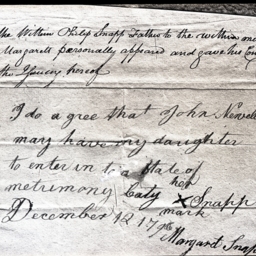 the Within Philip Snapp Father to the within and
Margarett personally appeard and gave his Con
the Ishuing hereof
I do a gree that John Newell
may have my daughter
to enter in to a State of
metrimony Caty her X Snapp
mark
December 12 179
Margard Snap